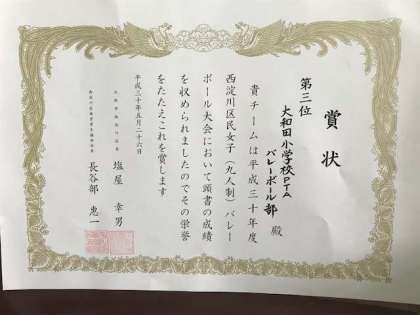 賞状
第三位
大和田小学校PTA
バレーボール部 殿
貴チームは平成三十年度
西淀川区民女子(九人制)バレー
ボール大会において頭書の成績
を収められましたのでその栄誉
をたたえこれを賞します
平成三十年五月二十六日
塩屋 幸男
長谷部 恵一